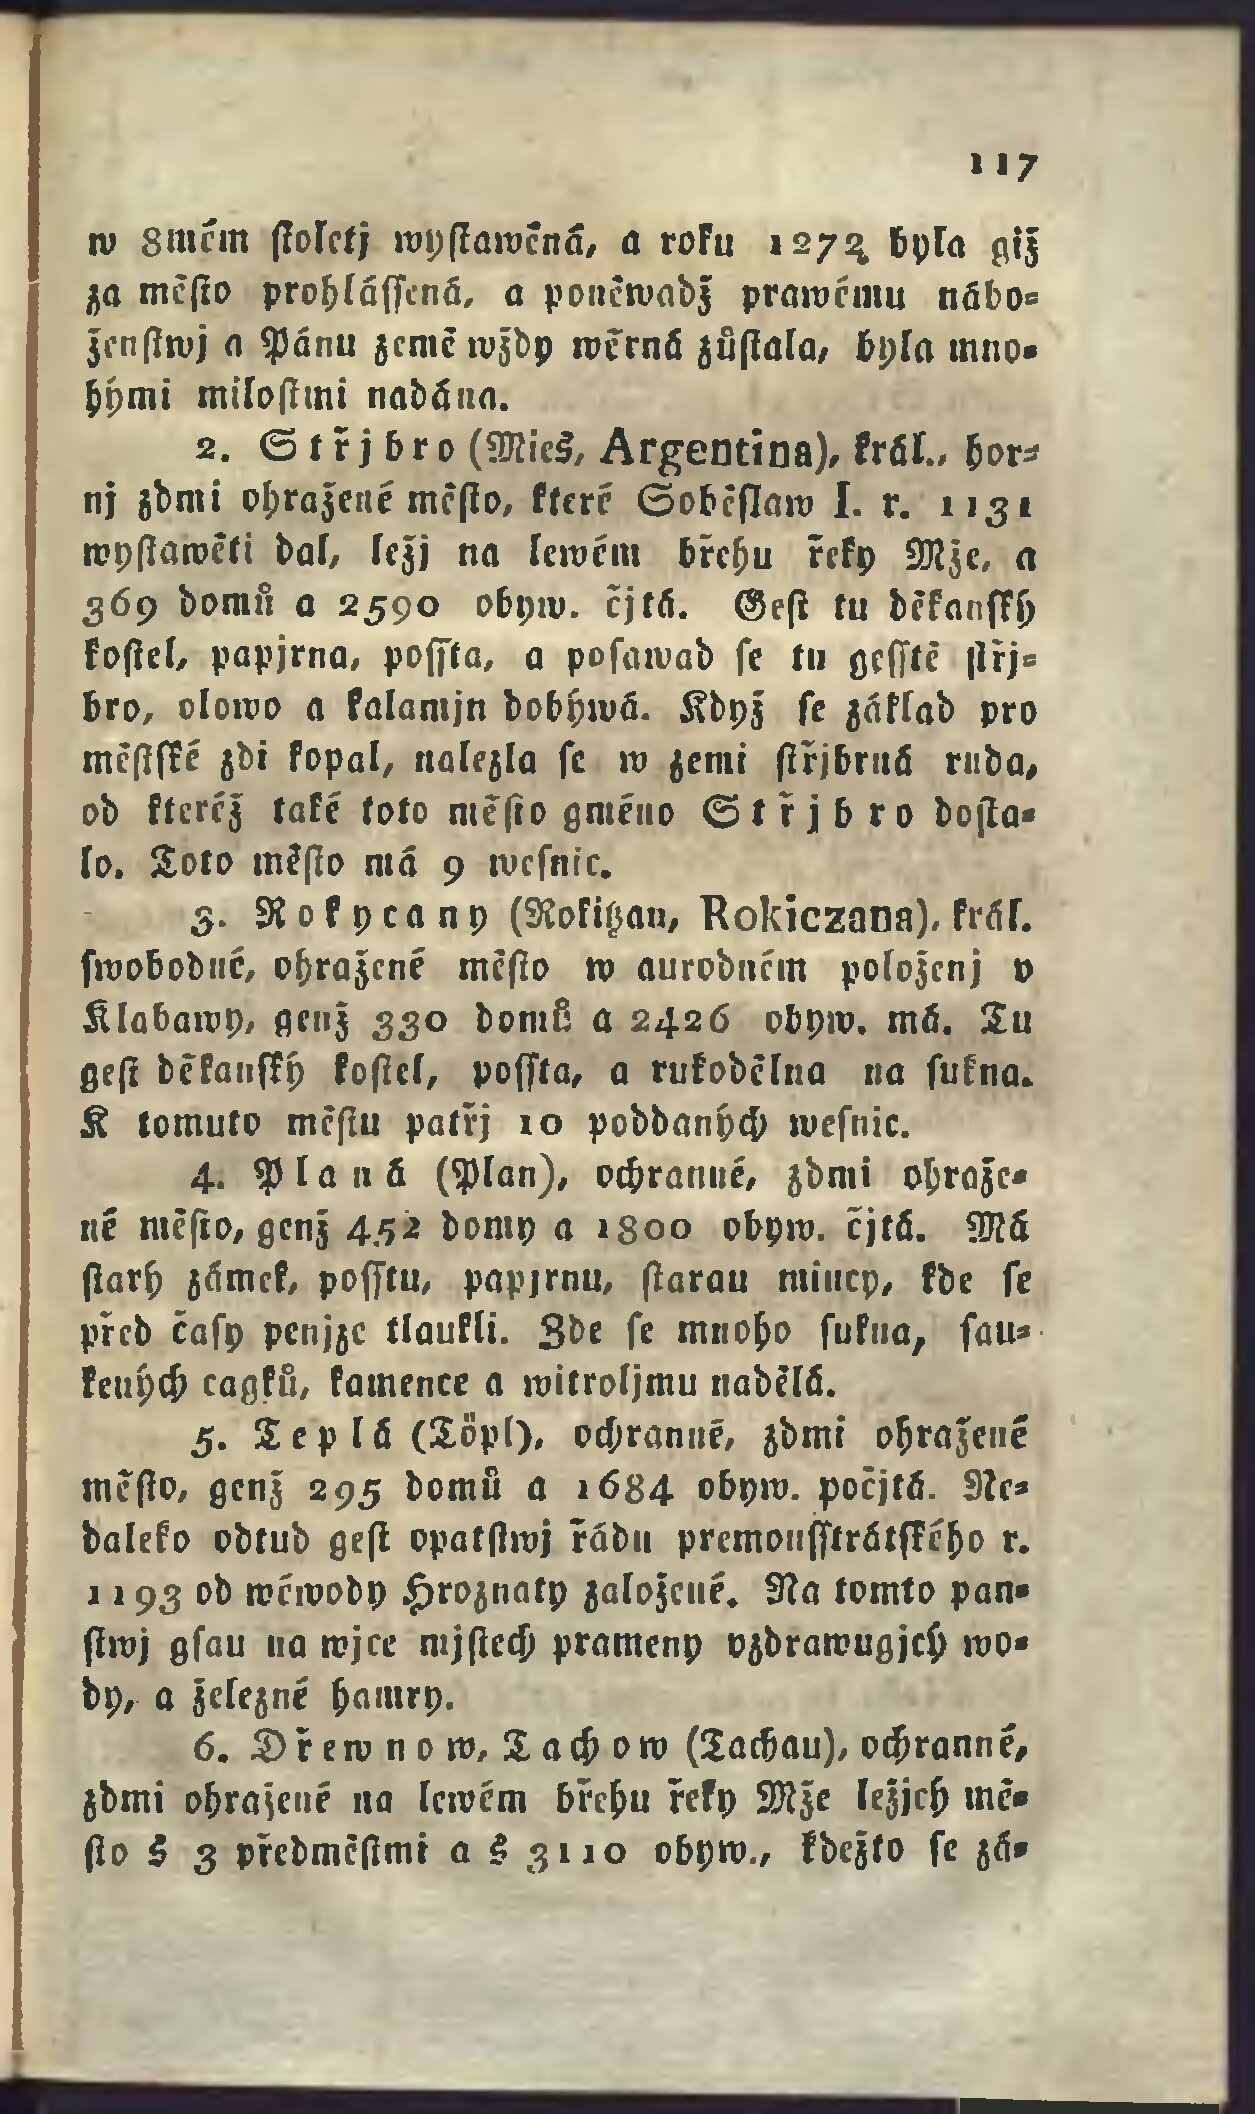 117
w 8mém ſtoletj wyſtawěná, a roku 1272 byla giž
za měſto prohláſſená, a poněwadž prawému nábo-
ženſtwj a Pánu země wždy wěrná zůſtala, byla mno-
hými miloſtmi nadána.
2. Střjbro (Mies, Argentina), král., hor-
nj zdmi ohražené měſto, které Soběſlaw I. r. 1131
wyſtawěti dal, ležj na lewém břehu řeky Mže, a
369 domů a 2590 obyw. čjtá. Geſt tu děkanſký
koſtel, papjrna, poſſta, a poſawad ſe tu geſſtě ſtřj-
bro, olowo a kalamjn dobýwá. Když ſe základ pro
měſtſké zdi kopal, nalezla ſe w zemi ſtřjbrná ruda,
od kteréž také toto měſto gméno Střjbro doſta-
lo. Toto měſto má 9 weſnic.
3. Rokycany (Rokitzan, Rokiczana), král.
ſwobodné, ohražené měſto w aurodném položenj v
Klabawy, genž 330 domů a 2426 obyw. má. Tu
geſt děkanſký koſtel, poſſta, a rukodělna na ſukna.
K tomuto měſtu patřj 10 poddaných weſnic.
4. Planá (Plan), ochranné, zdmi ohraže-
né měſto, genž 452 domy a 1800 obyw. čjtá. Má
ſtarý zámek, poſſtu, papjrnu, ſtarau mincy, kde ſe
před čaſy penjze tlaukli. Zde ſe mnoho ſukna, ſau-
kených cagků, kamence a witroljmu nadělá.
5. Teplá (Töpl), ochranné, zdmi ohražené
měſto, genž 295 domů a 1684 obyw. počjtá. Ne-
daleko odtud geſt opatſtwj řádu premonſſtrátſkého r.
1193 od wéwody Hroznaty založené. Na tomto pan-
ſtwj gſau na wjce mjſtech prameny vzdrawugjcých wo-
dy, a železné hamry.
6. Dřewnow, Tachow (Tachau), ochranné,
zdmi ohražené na lewém břehu řeky Mže ležjcý mě-
ſto s 3 předměſtmi a s 3110 obyw., kdežto ſe zá-